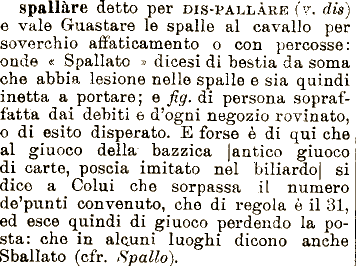 spallàre detto per DIS-PALLÀRE (v. dis)
e vale Guastare le spalle al cavallo per
soverchio affaticamento o con percosse:
onde « Spallato » dicesi di bestia da soma
che abbia lesione nelle spalle e sia quindi
inetta a portare; e fig. di persona sopraf-
fatta dai debiti e d'ogni negozio rovinato,
o di esito disperato. E forse è di qui che
al giuoco della bazzica |antico giuoco
di carte, poscia imitato nel biliardo| si
dice a Colui che sorpassa il numero
de'punti convenuto, che di regola è il 31,
ed esce quindi di giuoco perdendo la po-
sta: che in alcuni luoghi dicono anche
Sballato (cfr. Spallo).